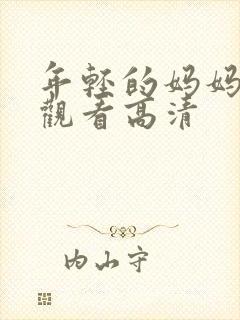 年轻的妈妈
觀看高清
内山守